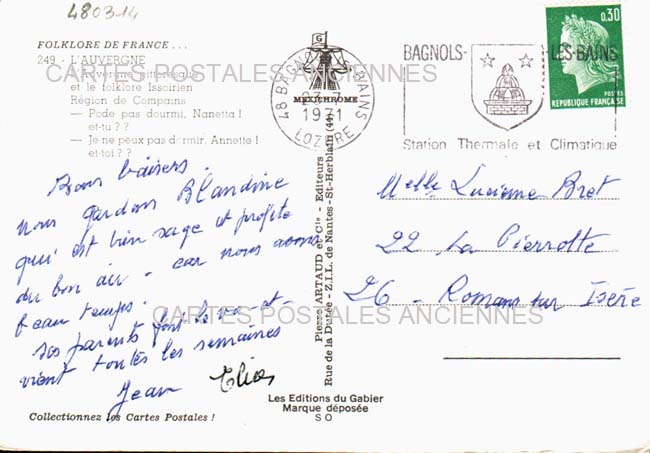 480314
FOLKLORE DE FRANCE . . .
249 - L'AUVERGNE
L'Auvergne pittoresque
et le folklore Issoirien
Région de Compains
— Pode pas dourmi, Nanetta !
et-tu ? ?
— Je ne peux pas dormir, Annette !
et toi ? ?
CARTES POSTALES ANCIENNES
G
MEXICHROME
48 BAGNOLS-LES-BAINS
1971
LOZERE
BAGNOLS-LES-BAINS
Station Thermale et Climatique
0,30
POSTES
REPUBLIQUE FRANÇAISE
Bons baisers.
nous gardons Blandine
qui est bien sage et profite
du bon air - car nous avons
beau temps.
ses parents font le va-et-
vient toutes les semaines
Jean
Melle Lucienne Bret
22 La Pierrotte
26 - Romans sur Isère
CARTES POSTALES ANCIENNES
Pierre ARTAUD et Cie - Editeurs
Rue de la Durée - Z.I.L. de Nantes - St-Herblain (44)
Les Editions du Gabier
Marque déposée
S O
Collectionnez les Cartes Postales !